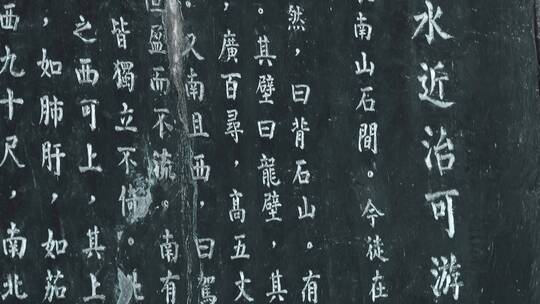 水近治可游
南山石間。今徙在
然，曰背石山。有
。其壁曰龍壁，其
，廣百尋，高五丈
。又南且西，曰駕
盈而不流。南有
皆獨立不倚。北
之西可上，其上
，如肺肝，如茄
西九十尺，南北